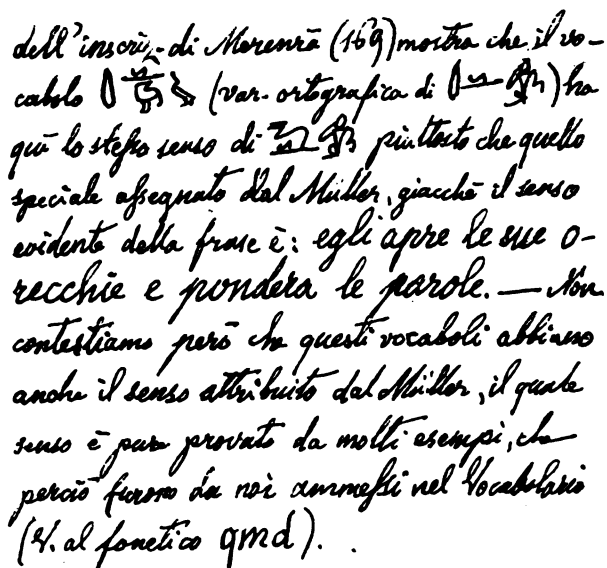 dell'inscriz. di Merenrā (169) mostra che il vo-
cabolo (var. ortografica di ) ha
quì lo stesso senso di piuttosto che quello
speciale assegnato dal Müller, giacchè il senso
evidente della frase è: egli apre le sue o-
recchie e pondera le parole. — Non
contestiamo però che questi vocaboli abbiano
anche il senso attribuito dal Müller, il quale
senso è pure provato da molti esempi, che
perciò furono da noi ammessi nel Vocabolario
(V. al fonetico qmd).